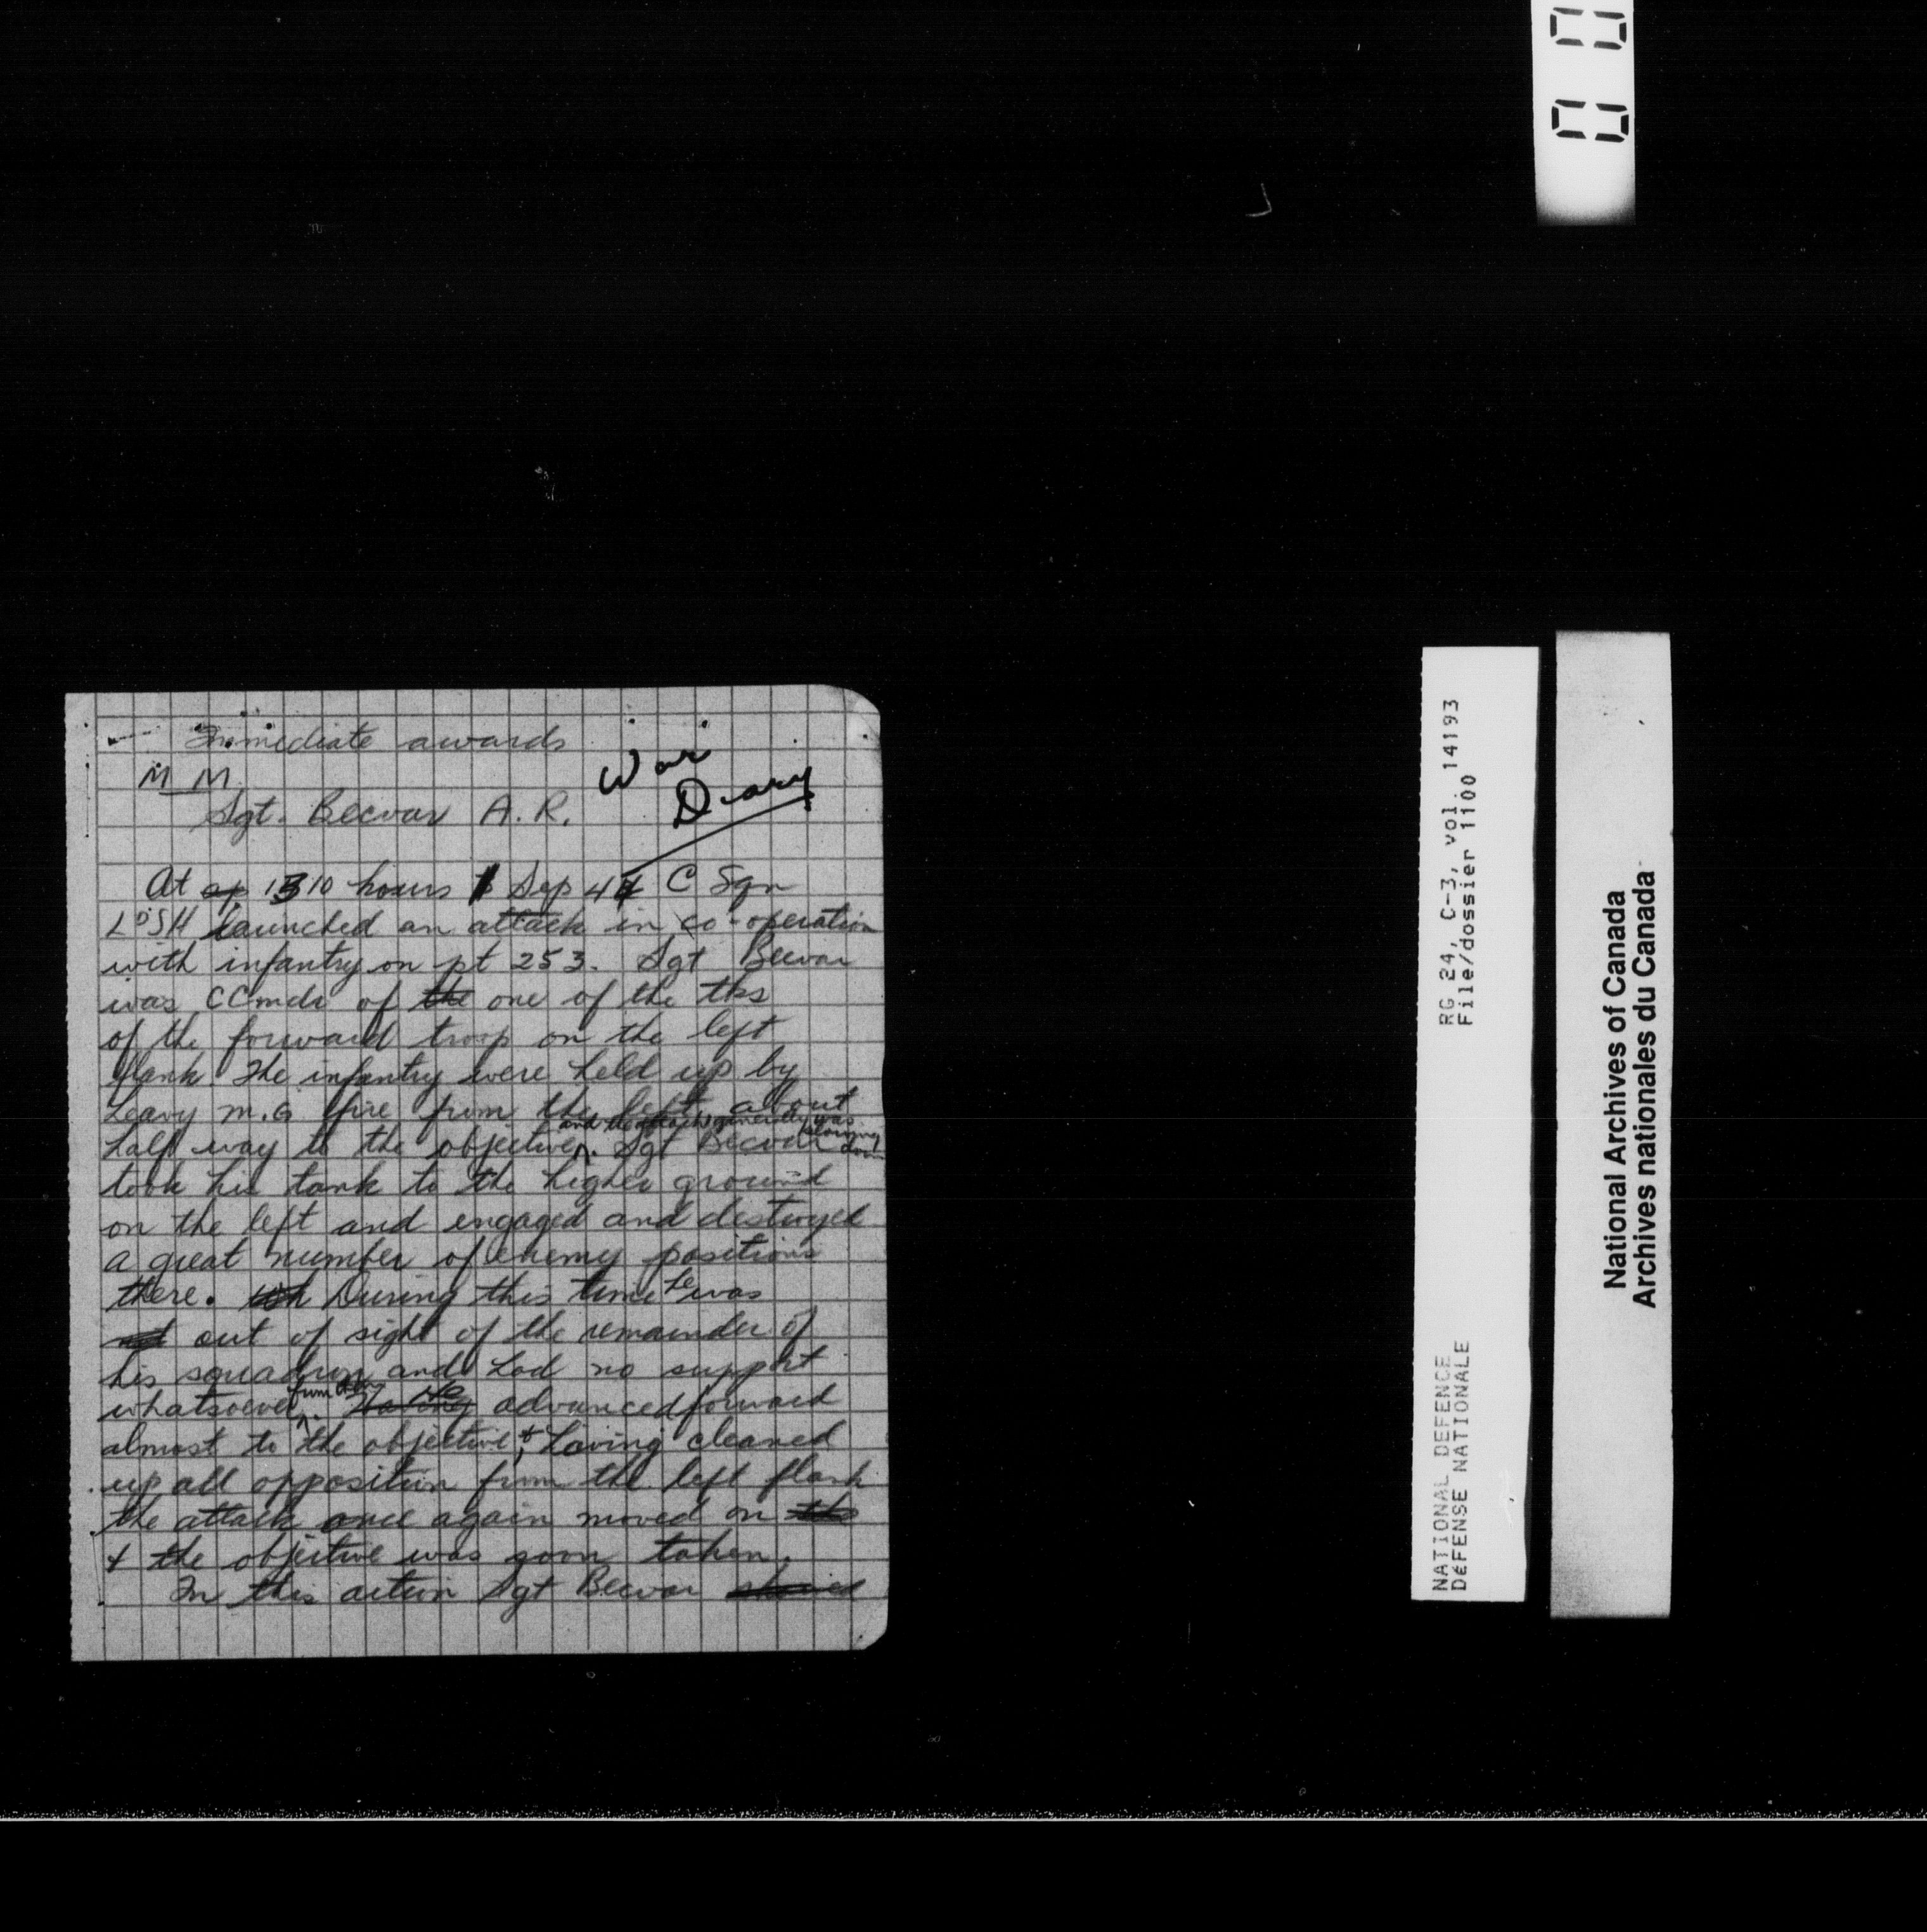 Immediate awards
War
Diary
M M
Sgt. Becvar A.R.
At 1310 hours 1 Sep 44 C Sqn
LdSH launched an attack in co-operation
with infantry on pt 253. Sgt Becvar
was CCmdr of the one of the tks
of the forward troop on the left
flank. The infantry were held up by
heavy m.G fire from the left about
and the attack generally was slowing down
half way to the objective. Sgt Becvar
took his tank to the higher ground
on the left and engaged and destroyed
a great number of enemy positions
there. During this time he was
out of sight of the remainder of
his squadron and had no support
whatsoever from them. Having He advanced forward
almost to the objective, & having cleaned
up all opposition from the left flank
the attack once again moved on the
& the objective was soon taken.
In this action Sgt Becvar showed
RG 24, C-3, vol. 14193
File/dossier 1100
NATIONAL DEFENCE
DÉFENSE NATIONALE
National Archives of Canada
Archives nationales du Canada